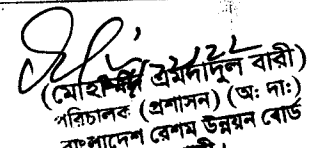 (মোহাম্মদ এমদাদুল বারী)
পরিচালক (প্রশাসন) (অঃ দাঃ)
বাংলাদেশ রেশম উন্নয়ন বোর্ড